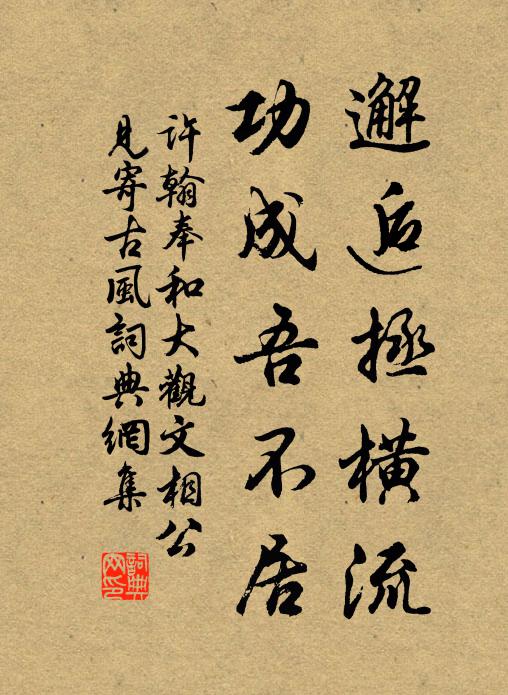 邂逅拯橫流
功成吾不居
許翰奉和大觀文相公
見寄古風詞典網集
詞典
网印